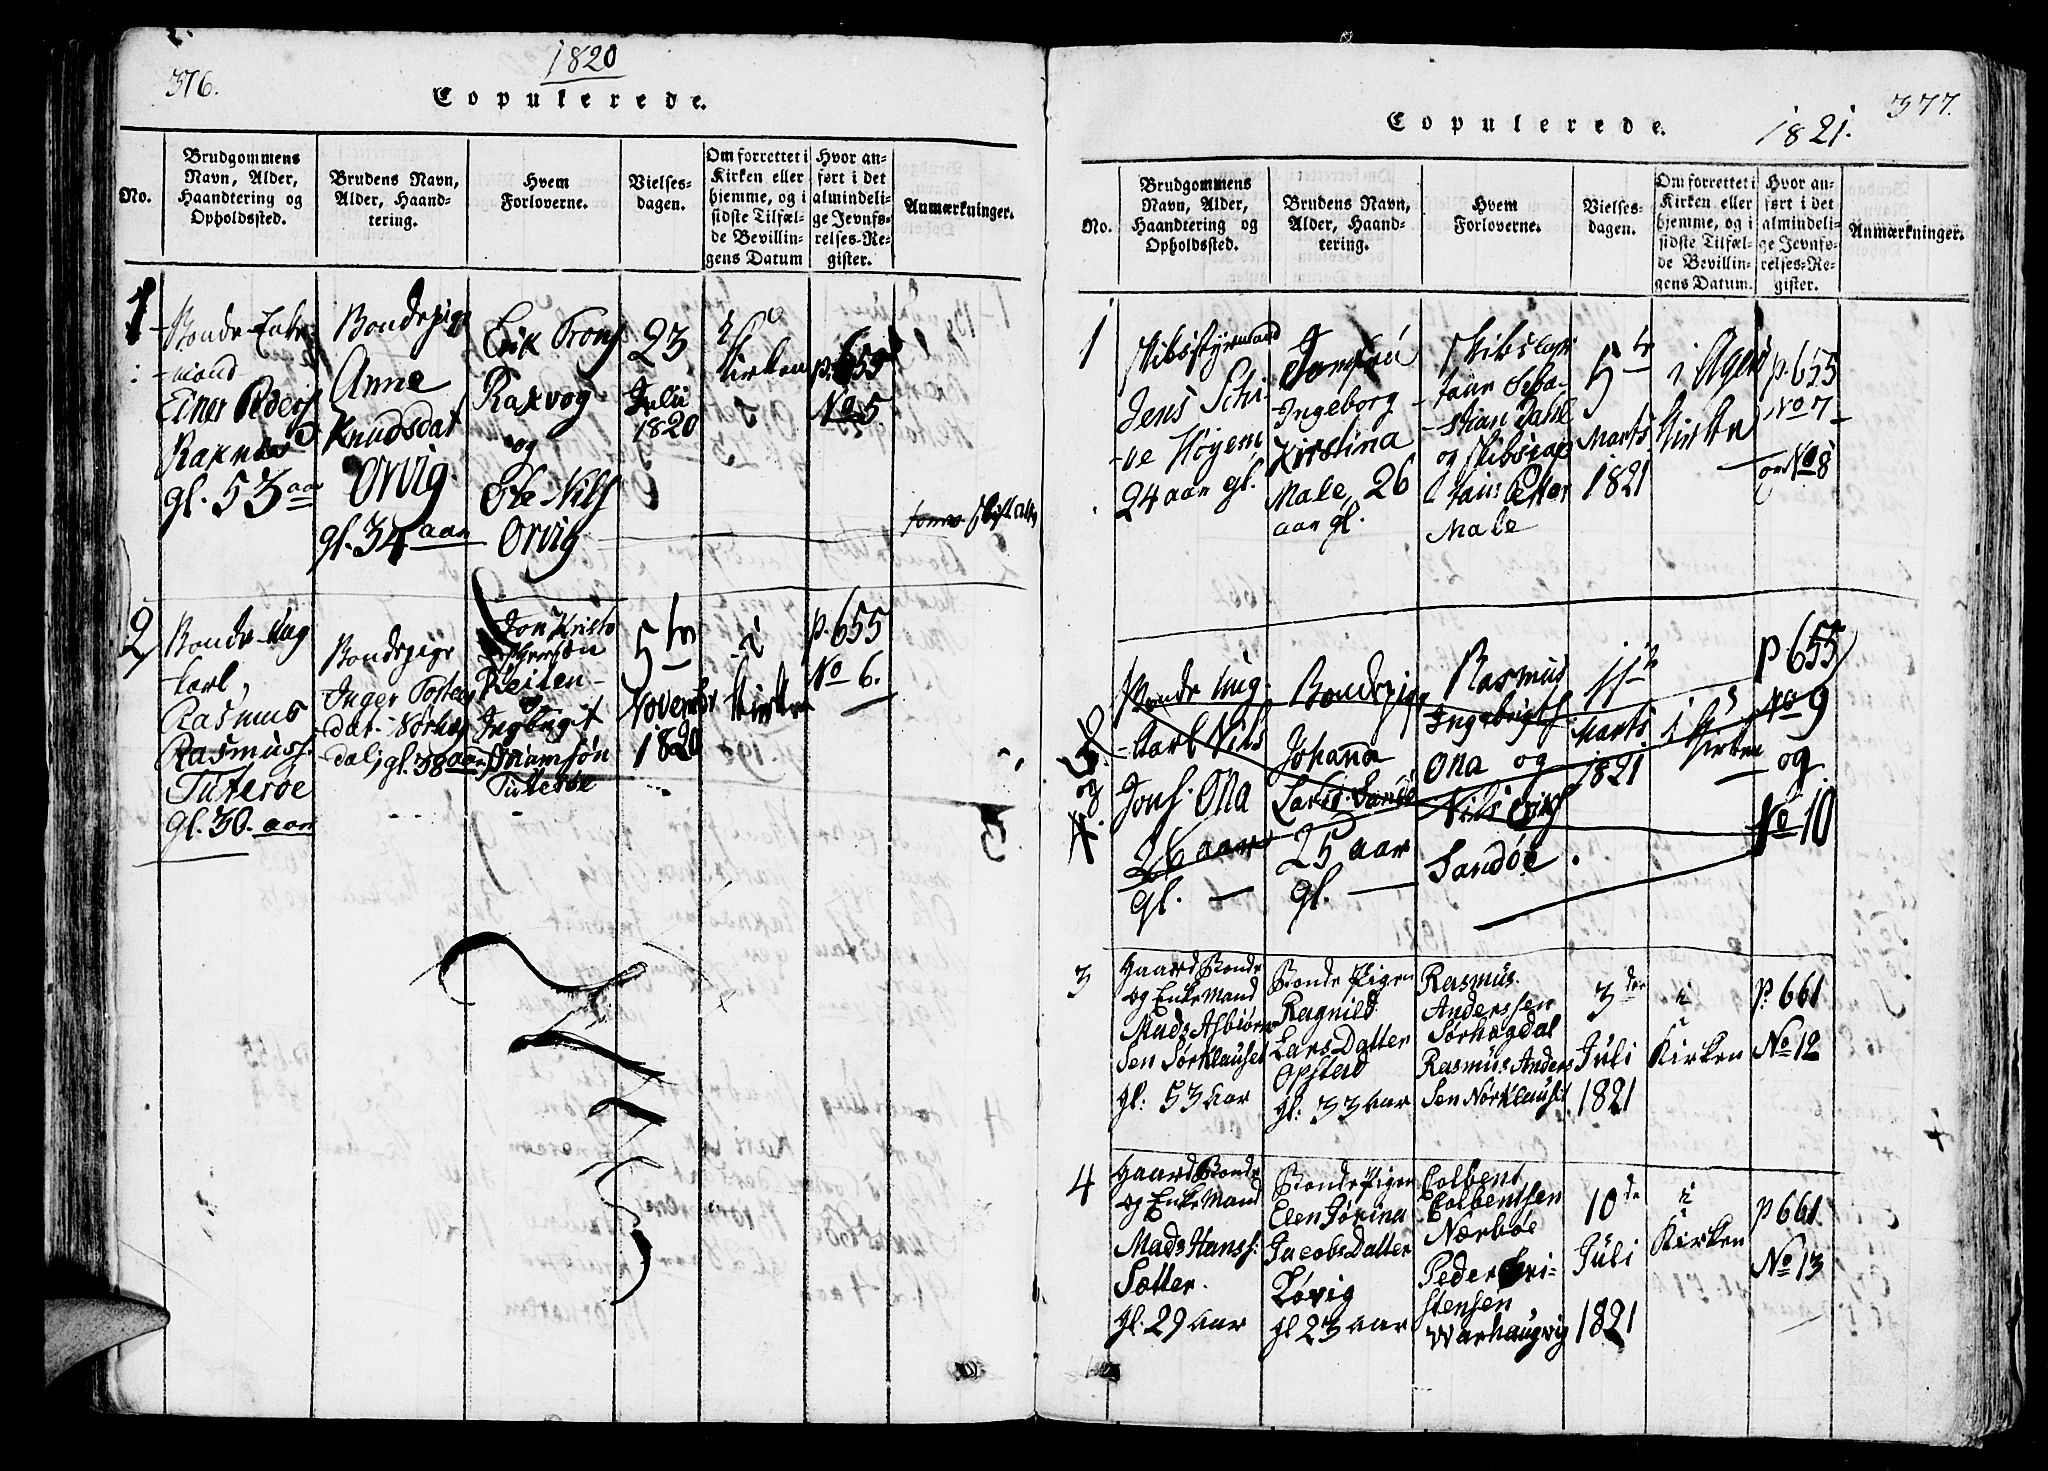 376.
1820
Copulerede.
No.
Brudgommens
Navn, Alder,
Haandtering og
Opholdssted.
Brudens Navn,
Alder, Haand-
tering.
Hvem
Forloverne.
Vielses-
dagen.
Om forrettet i
Kirken eller
hjemme, og i
sidste Tilfæl-
de Bevillin-
gens Datum
Hvor an-
ført i det
almindeli-
ge Jevnfø-
relses-Re-
gister.
Anmærkninger.
1
Bonde Enke
-mand
Einer Peders
Raknes
gl. 53 aar
Bondepige
Anne
Knudsdat
Orvig.
gl. 34 aar
Erik Trons
Rakvog
og
Ole Nils
Orvig
23
Julii
1820
i
Kirken
p. 655
No 5.
2
Bonde-Ung
karl,
Rasmus
Rasmuss.
Tuterøe
gl. 30. aar
Bondepige
Inger
dat. Sørhog
dal, gl. 38 aar
Jon Kristo
phersøn
Reiten
og
Ingbrigt
Tuterøe
5te
November
1820
i
Kirken
p. 655
No 6.
377.
Copulerede.
1821.
No.
Brudgommens
Navn, Alder,
Haandtering og
Opholdssted.
Brudens Navn,
Alder, Haand-
tering.
Hvem
Forloverne.
Vielses-
dagen.
Om forrettet i
Kirken eller
hjemme, og i
sidste Tilfæl-
de Bevillin-
gens Datum.
Hvor an-
ført i det
almindeli-
ge Jevnfø-
relses-Re-
gister.
Anmærkninger.
1
Skibsstyrmand
Jens Schi-
ve Høyem
24 aar gl.
Jomfru
Ingeborg
Kirstina
Male, 26
aar gl.
Skibscapi
-tain Seba-
-stian Dahl
og Skibscap
tain Petter
Male
5te
Marts
1821
i Agerø
Kirke
p. 655
No 7
og No 8
2
og
4.
Bonde Ung-
-karl Nils
Jons. Ona
26 aar
gl.
Bondepige
Johanna
Larsd. Sandø
25 aar
gl.
Rasmus
Ingebrigts
Ona og
Nils Erichs
Sandøe.
11te
Marts
1821
i
Kirken
p. 655
No 9
og
No 10
3
Gaard Bonde
og Enke Mand
Mads Asbiørn
Sen Sørklauset
gl: 53 Aar
Bonde Pigen
Ragnild
Lars Datter
Opstad
gl: 33 Aar
Rasmus
Anderssen
Sørhogdal
Rasmus Anders
Sen Nørklauset
3die
Juli
1821
i
Kirken
p. 661
No 12
4
Gaard Bonde
og Enke Mand
Mads Hanss:
Sætter.
gl. 29 Aar
Bonde Pigen
Elen Jørina
Jacobs Datter
Løvig
gl 23 Aar
Colbent
Colbentsen
Nærbøe
Peder Cri-
stensen
Warhaugvig
10de
Juli
1821
i
Kirken
p 661
No 13